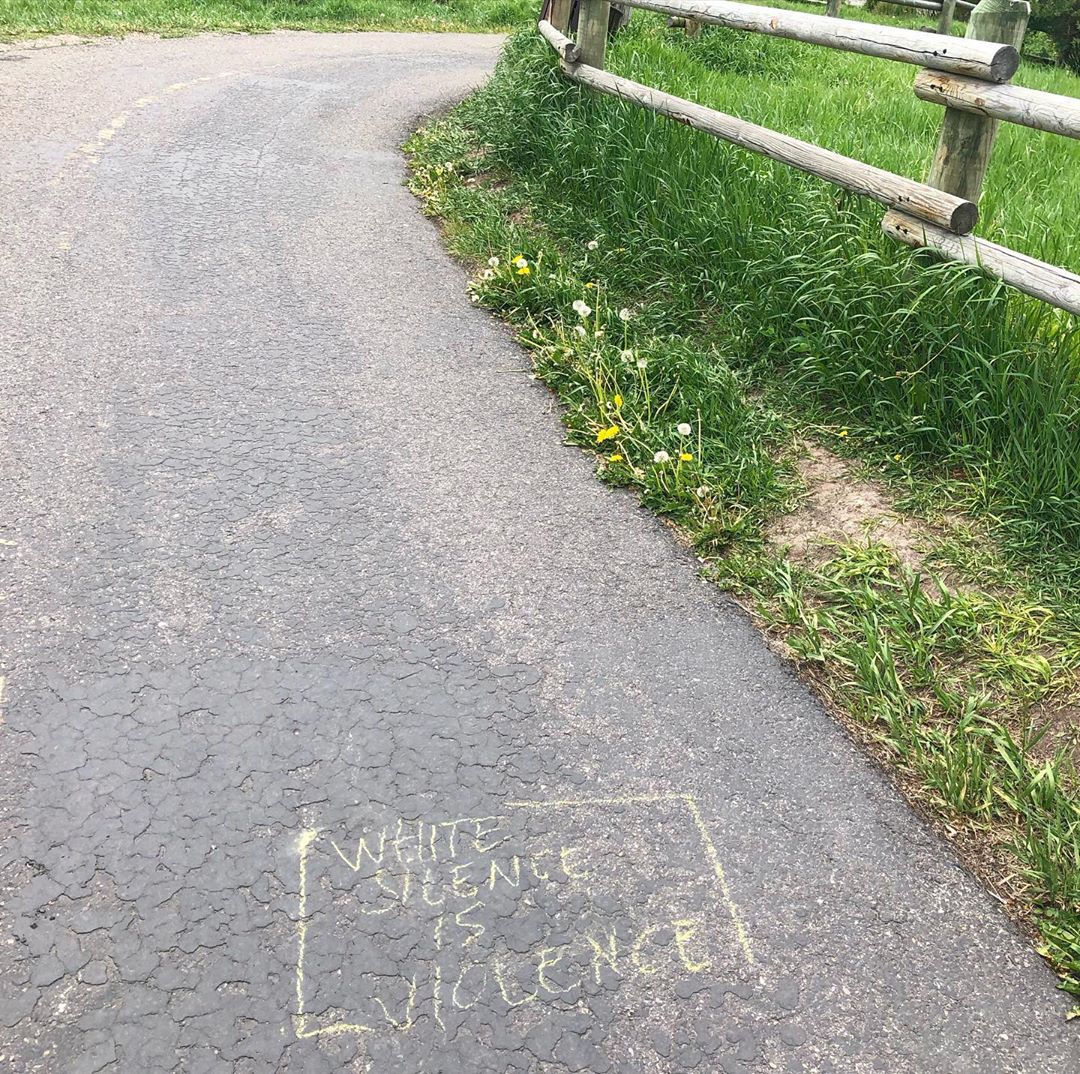 WHITE
SILENCE
IS
VIOLENCE